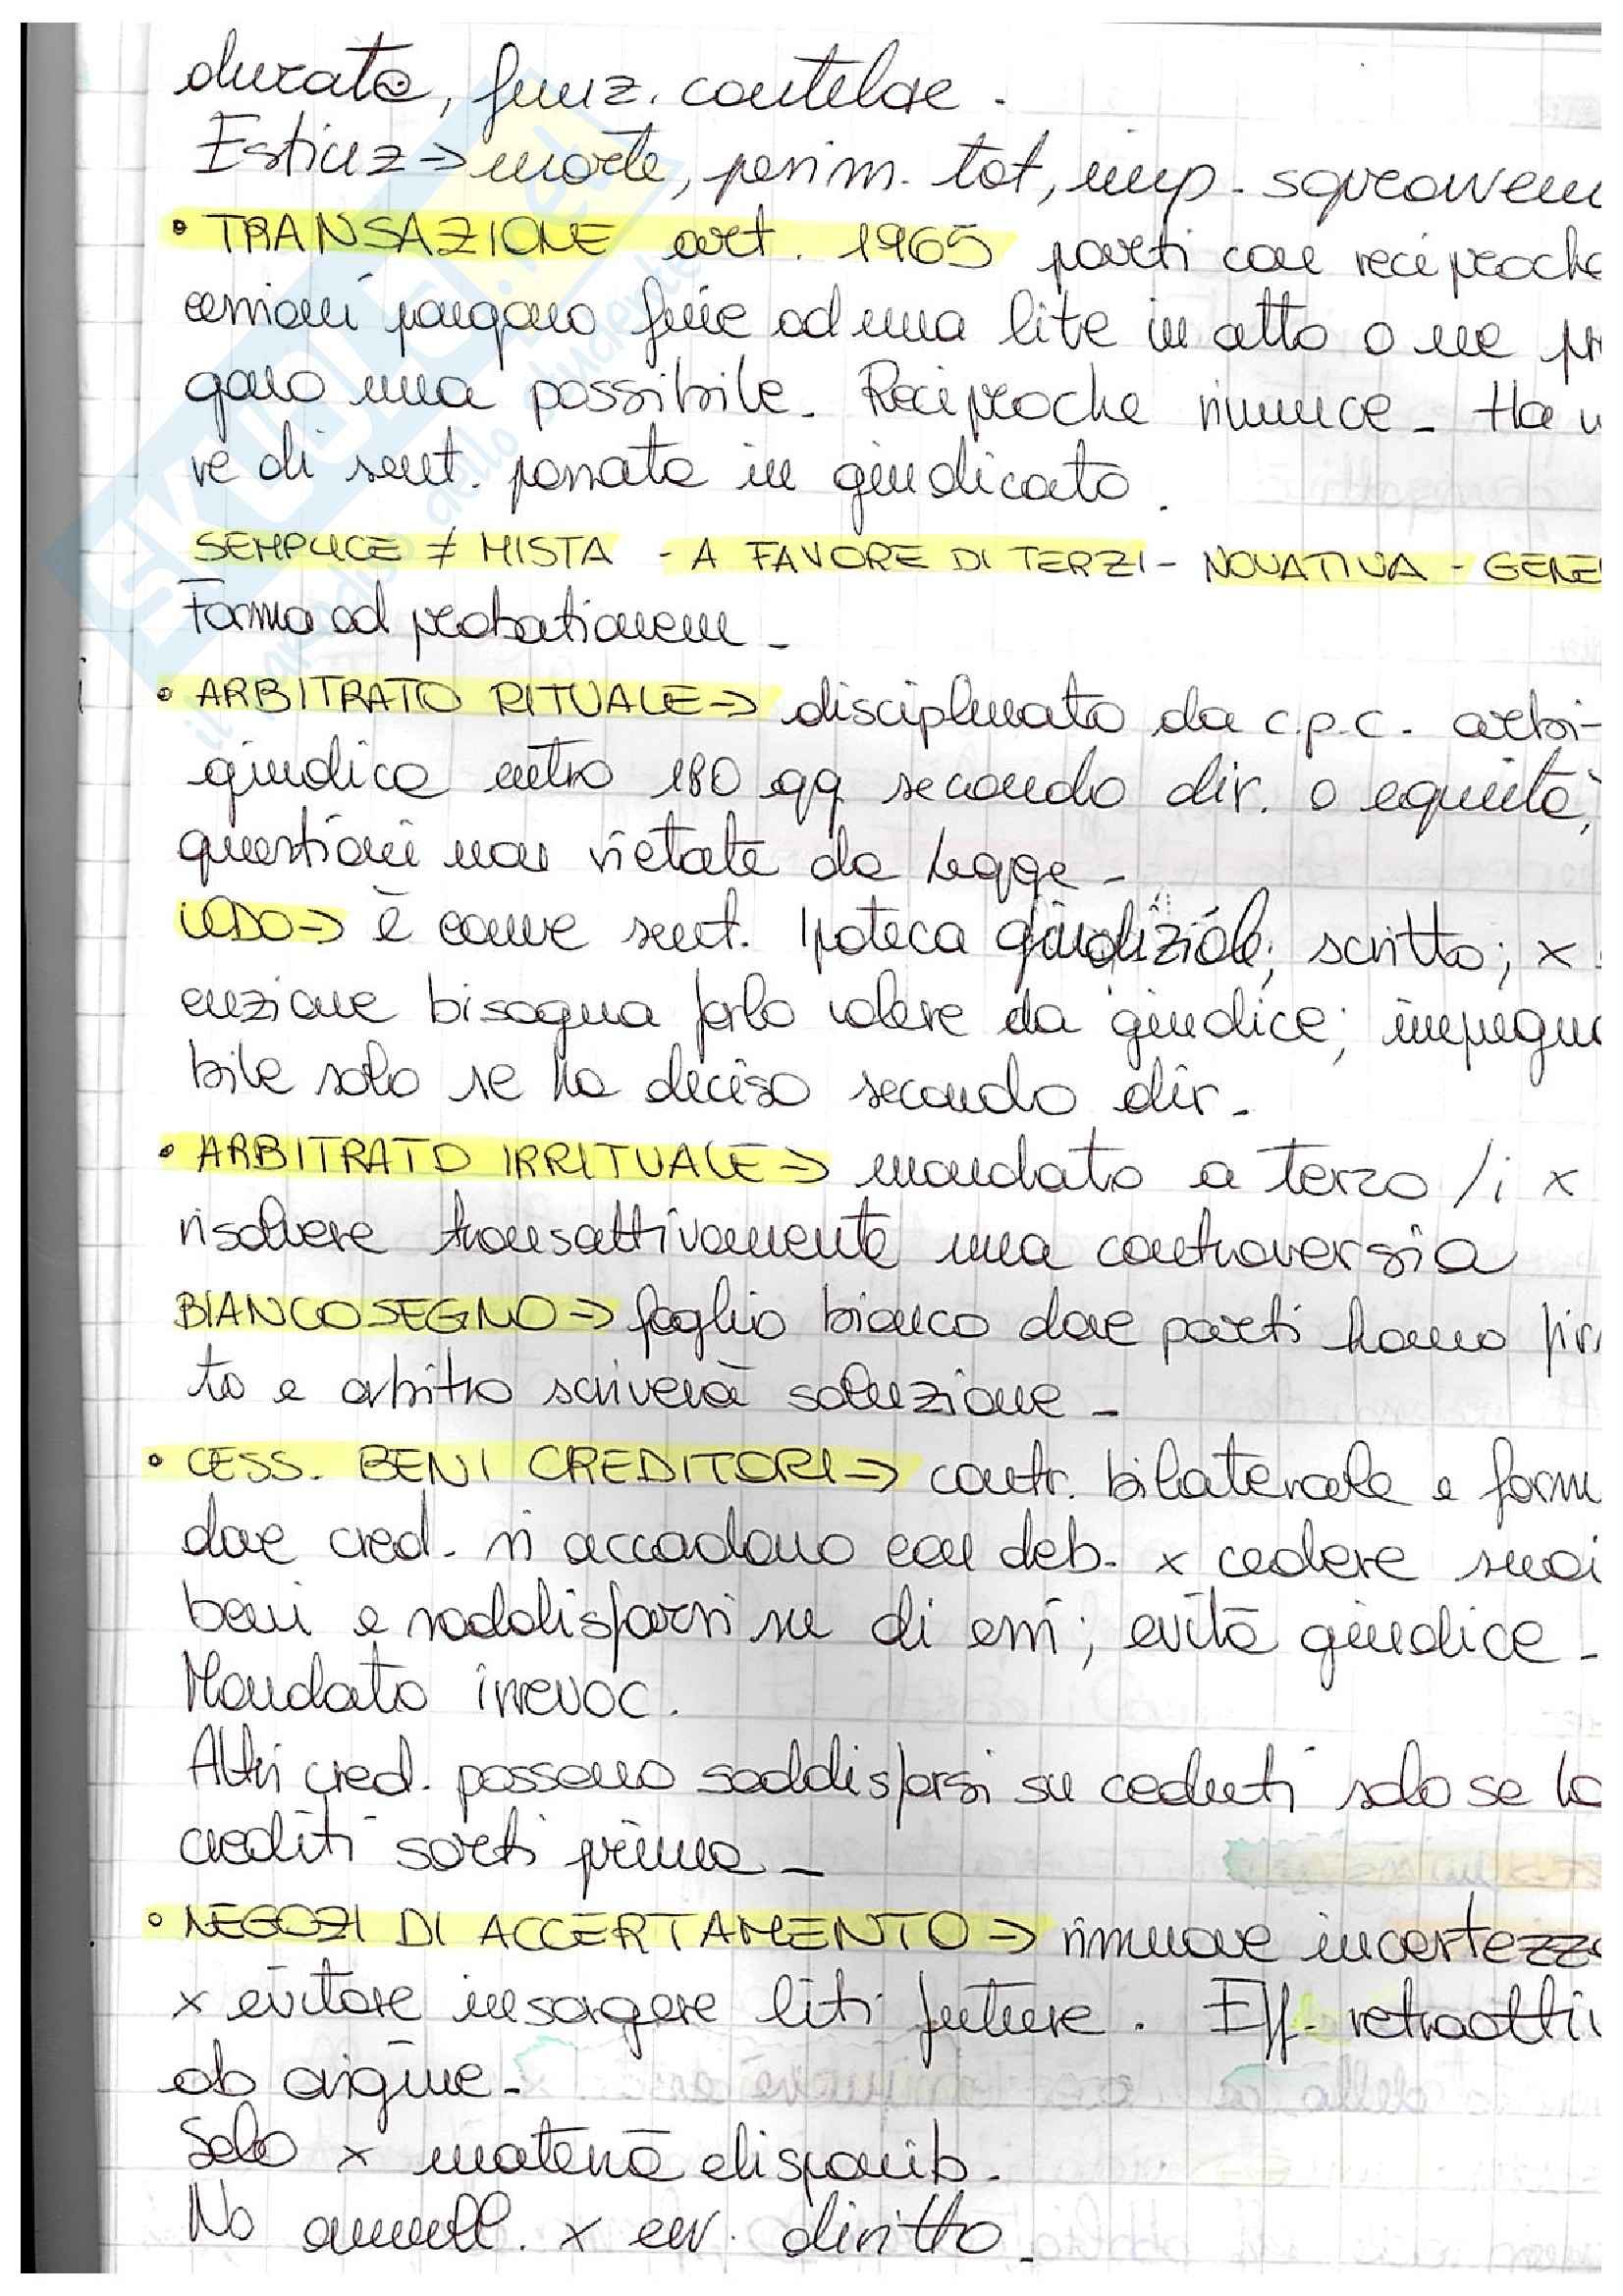 durata, funz. cautelare.
Estinz → morte, perim. tot, imp. sopravven
• TRANSAZIONE art. 1965 parti con reciproche
cessioni pongono fine ad una lite in atto o ne pr
gono una possibile. Reciproche rinunce - Ha v
re di sent. passata in giudicato.
SEMPLICE ≠ MISTA - A FAVORE DI TERZI - NOVATIVA - GENE
Forma ad probationem -
• ARBITRATO RITUALE → disciplinato da c.p.c. arbi-
giudica entro 180 gg secondo dir. o equità,
questioni non vietate da legge -
LODO → è come sent. Ipoteca giudiziale; scritto; x
cuzione bisogna farlo valere da giudice; impugna
bile solo se ha deciso secondo dir -
• ARBITRATO IRRITUALE → mandato a terzo /i x
risolvere transattivamente una controversia
BIANCOSEGNO → foglio bianco dove parti hanno fir
to e arbitro scriverà soluzione -
• CESS. BENI CREDITORI → contr. bilaterale e form
dove cred. si accordano con deb. x cedere suoi
beni e soddisfarsi su di essi; evita giudice -
Mandato irrevoc.
Altri cred. possono soddisfarsi su ceduti solo se ha
crediti sorti prima -
• NEGOZI DI ACCERTAMENTO → rimuove incertezza
x evitare insorgere liti future. Eff. retroatti
ab origine -
Solo x materia disponib.
No annull. x err. diritto -
SKUOLA.net
il paradiso dello studente